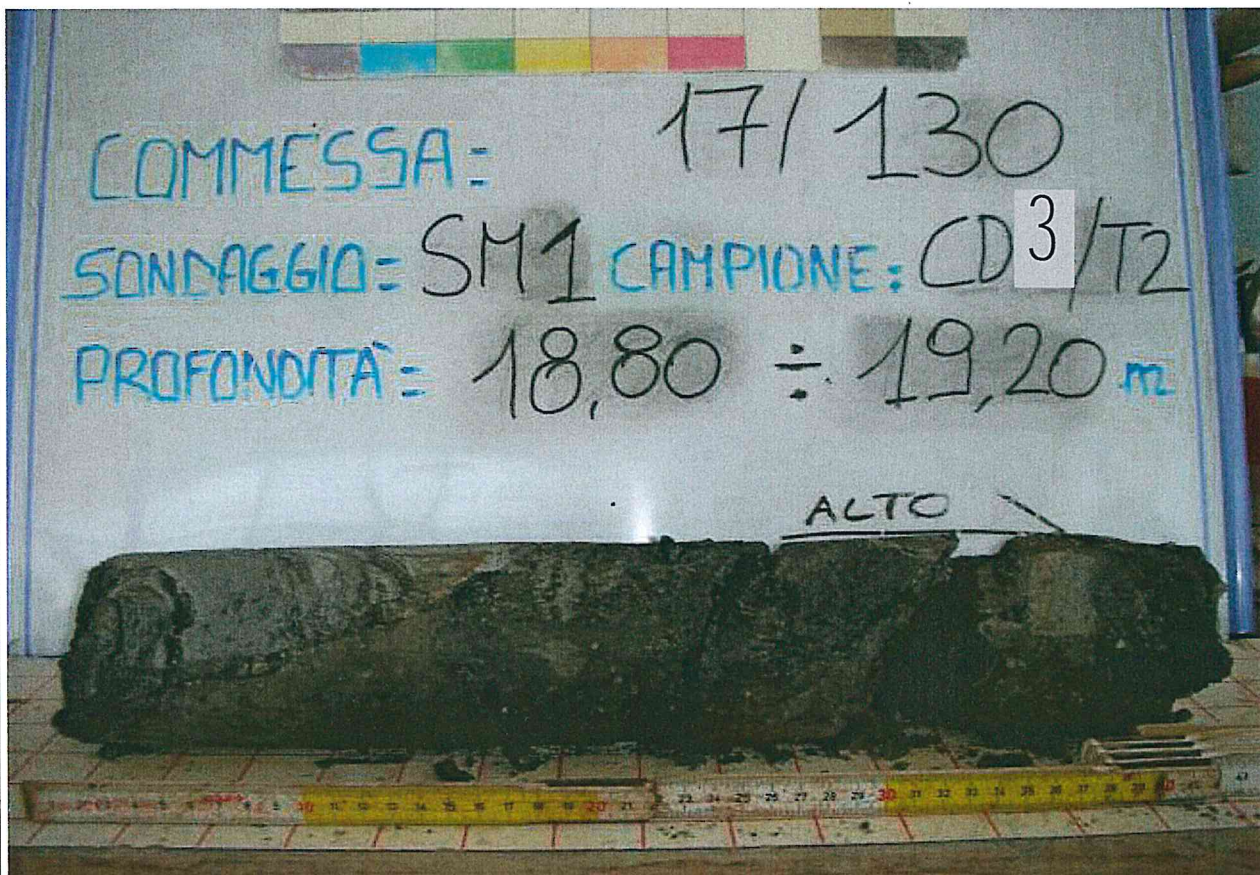 COMMESSA= 17/130
SONDAGGIO= SM1 CAMPIONE: CD3/T2
PROFONDITÀ= 18,80 ÷ 19,20 m
ALTO
10 11 12 13 14 15 16 17 18 19 20 21 23 24 25 26 27 28 29 30 31 32 33 34 35 36 37 38 39 40